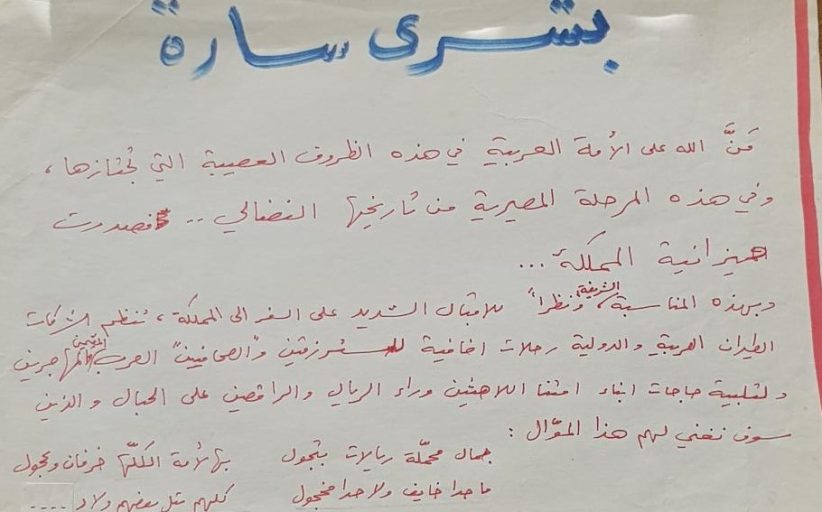 بشرى سارة
مَنَّ الله على الأمة العربية في هذه الظروف العصيبة التي تجتازها،
وفي هذه المرحلة المصيرية من تاريخها النضالي .. فصدرت
ميزانية المملكة ...
وبهذه المناسبة الشريفة، ونظراً للاقبال الشديد على السفر الى المملكة، تنظم شركات
الطيران العربية والدولية رحلات اضافية للمسترزقين و"الصحافيين" العرب المقيمين والمهاجرين
ولتلبية حاجات ابناء امتنا اللاهثين وراء الريال والراقصين على الحبال والذين
سوف نغني لهم هذا الموّال :
جمال محمّلة ريالات بتجول بهالأمة الكلّها خرفان وعجول
ماحدا خايف ولاحدا مخجول كلهم متل بعضهم ولاد ....